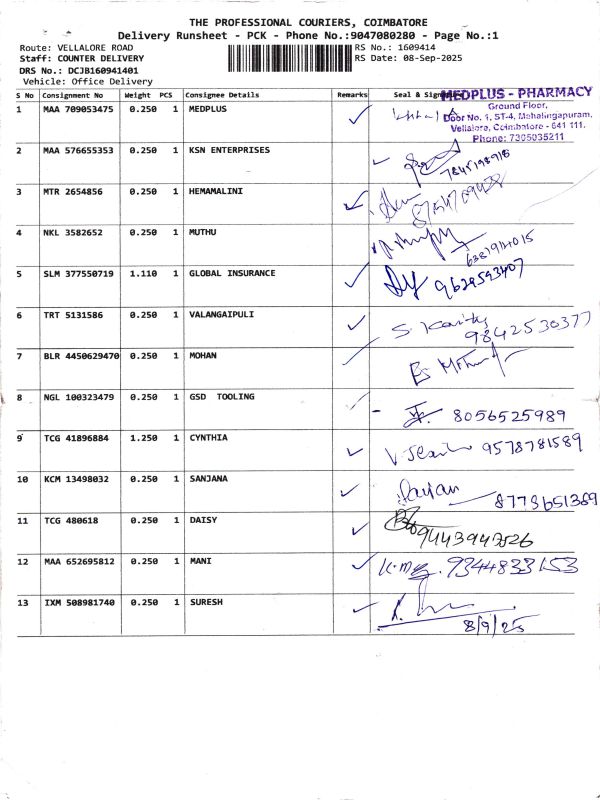 THE PROFESSIONAL COURIERS, COIMBATORE
Delivery Runsheet - PCK - Phone No.:9047080280 - Page No.:1
Route: VELLALORE ROAD RS No.: 1609414
Staff: COUNTER DELIVERY RS Date: 08-Sep-2025
DRS No.: DCJB160941401
Vehicle: Office Delivery
S No Consignment No Weight PCS Consignee Details Remarks Seal &
MEDPLUS - PHARMACY
Ground Floor,
Door No. 1, ST-4, Mahalingapuram,
Vellalore, Coimbatore - 641 111.
Phone: 7305035211
1 MAA 709053475 0.250 1 MEDPLUS
2 MAA 576655353 0.250 1 KSN ENTERPRISES
7845198918
3 MTR 2654856 0.250 1 HEMAMALINI
4 NKL 3582652 0.250 1 MUTHU
5 SLM 377550719 1.110 1 GLOBAL INSURANCE
9629593407
6 TRT 5131586 0.250 1 VALANGAIPULI
9842530377
7 BLR 4450629470 0.250 1 MOHAN
8 NGL 100323479 0.250 1 GSD TOOLING
8056525989
9 TCG 41896884 1.250 1 CYNTHIA
9578781589
10 KCM 13498032 0.250 1 SANJANA
8773651369
11 TCG 480618 0.250 1 DAISY
9443943526
12 MAA 652695812 0.250 1 MANI
9344833153
13 IXM 508981740 0.250 1 SURESH
8/9/25